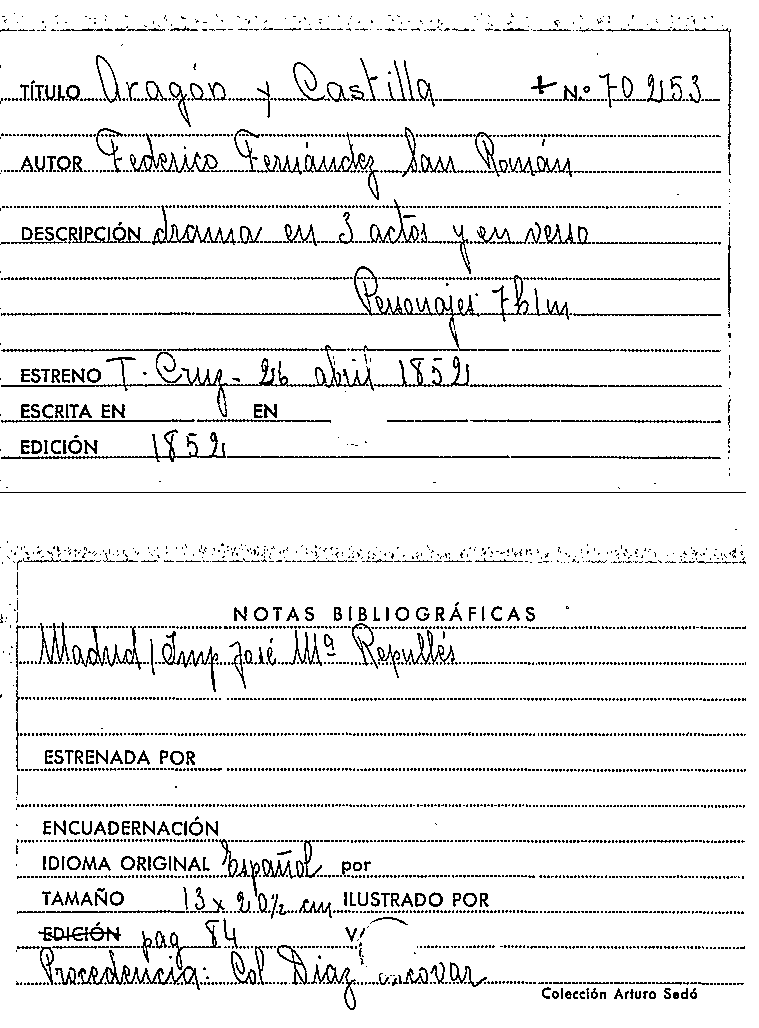 TÍTULO Aragón y Castilla + N.º 70253
AUTOR Federico Fernández San Román
DESCRIPCIÓN drama en 3 actos y en verso
Personajes 7h1m
ESTRENO T. Cruz - 26 abril 1852
ESCRITA EN EN
EDICIÓN 1852
NOTAS BIBLIOGRÁFICAS
Madrid / Imp José Mª Repullés
ESTRENADA POR
ENCUADERNACIÓN
IDIOMA ORIGINAL Español por
TAMAÑO 13 x 20½ cm ILUSTRADO POR
EDICIÓN pag 84
Procedencia: Col Diaz
Colección Arturo Sedó